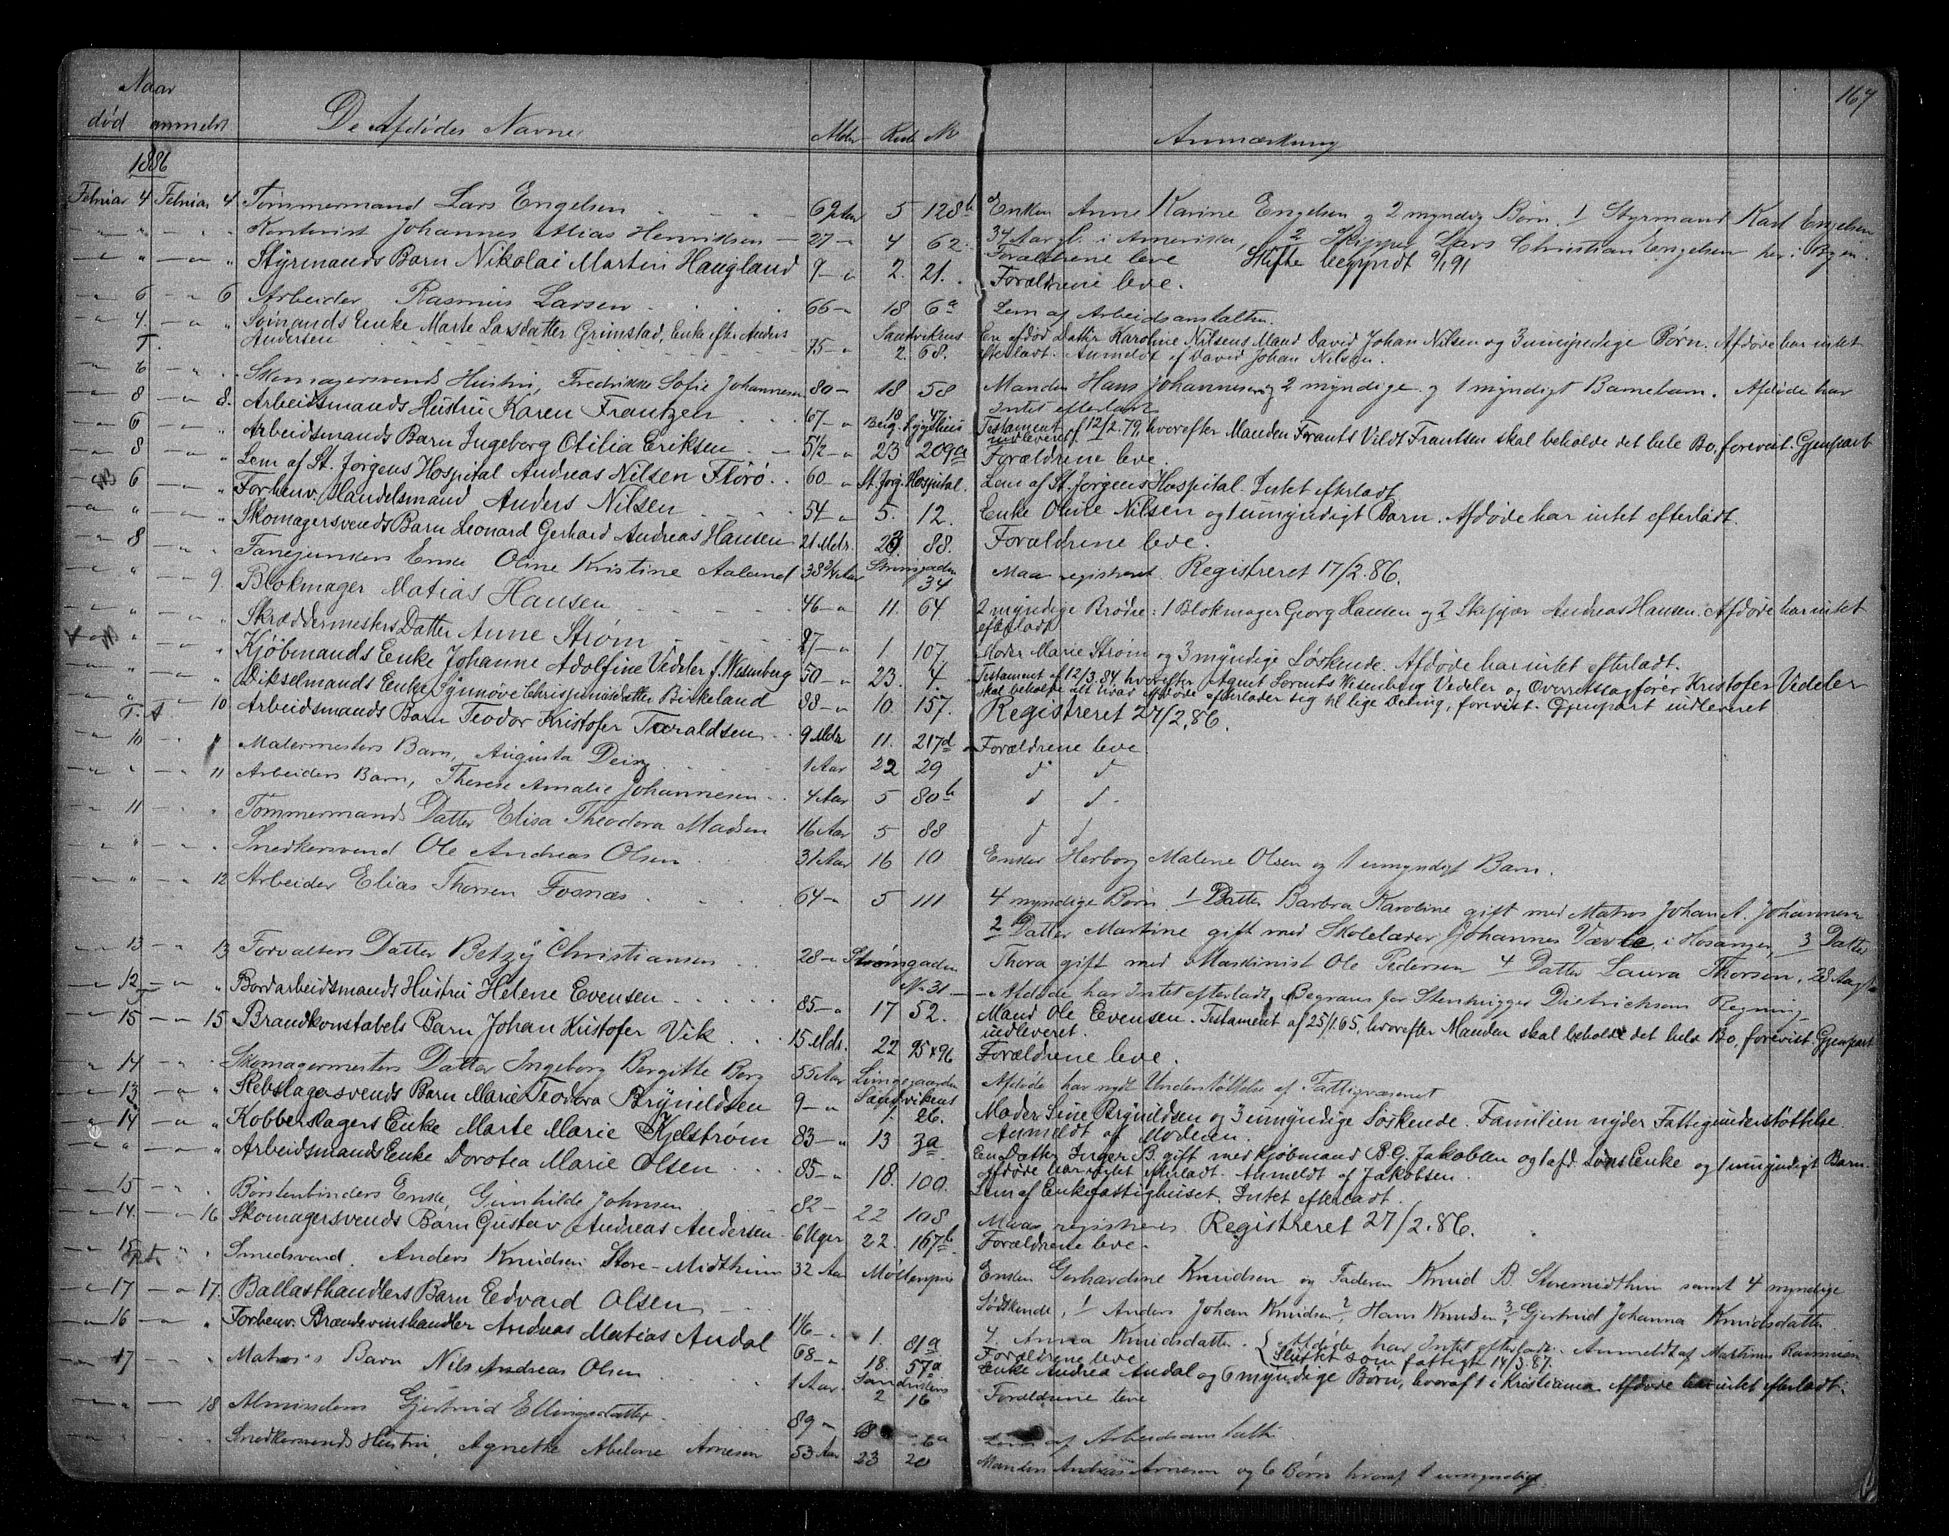 167
Naar
død anmeldt De Afdødes Navne Alder Rode No Anmærkning
1886
Februar 4 Februar 4 Tømmermand Lars Engelsen 69 Aar 5 128b Enken Anne Karine Engelsen og 2 myndig Børn. 1 Styrmand Karl Engelsen
Kontorist Johannes Alias Henriksen 27 4 62. 34 Aar gl. i Amerika, 2 Skipper Lars Christian Engelsen her i Byen.
Forældrene leve Skifte begyndt 9/1 91
Styrmands Barn Nikolai Martin Haugland 9 2. 21. Forældrene leve.
6 6 Arbeider, Rasmus Larsen 66 18 6a Lem af Arbeidsanstalten.
4. Sømands Enke Marte Larsdatter Grimstad, Enke efter Anders
Andersen 75 Sandvikens 2. 68. En afdød Datter Karoline Nilsens Mand David Johan Nilsen og 3 umyndige Børn. Afdøde har intet
efterladt. Anmeldt af David Johan Nilsen.
6 Skomagersvends Hustru, Fredrikke Sofie Johannesen 80 18 58 Manden Hans Johannesen og 2 myndige og 1 myndigt Barnebarn. Afdøde har
Intet efterladt
8 8. Arbeidsmands Hustru Karen Frantzen 67 18 47 Testament af 12/2.79, hvorefter Manden Frants Vildt Frantsen skal beholde det hele Bo, forevist. Gjenpart
indleveret.
6 Arbeidsmands Barn Ingeborg Otilia Eriksen 5 1/2 23 209a Forældrene leve.
8 Lem af St. Jørgens Hospital Andreas Nilsen Florø 60 St. Jørg. Hospital. Lem af St. Jørgens Hospital. Intet efterladt.
6 Forhenv. Handelsmand Anders Nilsen 54 5. 12. Enke Oline Nilsen og 1 umyndigt Barn. Afdøde har intet efterladt.
Skomagersvends Barn Leonard Gerhard Andreas Hansen 21 Mdr. 23 88. Forældrene leve.
8 Enke Oline Kristine Aaland 38 3/4 Aar Strømgaden 34 Maa registreret. Registreret 17/2.86.
9. Blokmager Matias Hansen 46 11. 64. 2 myndige Brødre: 1 Blokmager Georg Hansen og 2 Andreas Hansen. Afdøde har intet
efterladt
Skræddermesters Datter Anne Strøm 87 1. 107 Moder Marie Strøm og 3 myndige Søskende. Afdøde har intet efterladt.
Kjøbmands Enke Johanne Adolfine Vedeler f. Wesenberg 50 23. 4. Testament af 12/3.84, hvorefter Agent Lorents Wesenberg Vedeler og Overretssagfører Kristofer Vedeler
skal beholde alt hvad Afdøde efterlader sig til lige Deling, forevist. Gjenpart indleveret
Enke Synnøve Birkeland 88 10. 157. Registreret 27/2.86.
10 Arbeidsmands Barn Teodor Kristofer Taraldsen 9 Mdr 11. 217d Forældrene leve
10 Malermesters Barn, Augusta 1 Aar 22 29 d d
11 Arbeiders Barn, Therese Amalie Johannesen 4 Aar 5 80b d d
11 Tømmermands Datter Elisa Theodora Madsen 16 Aar 5 88 d d
Snedkersvend Ole Andreas Olsen 31 Aar 16 10 Enken Herborg Malene Olsen og 1 umyndigt Barn.
12 Arbeider Elias Thorsen Fosnæs 64 5 111 4 myndige Børn. 1 Datter Barbra Karoline gift med Matros Johan A. Johannesen
2 Datter Martine gift med Skolelærer Johannes i Hosanger, 3 Datter
13 13 Forvalters Datter Betzy Christiansen 28 Strømgaden Thora gift med Maskinist Ole Pedersen 4 Datter Laura Thorsen, 28 Aar
No 31 Afdøde har Intet efterladt, Begraves for Stenhugger Dietrichsons Regning
12 Bordarbeidsmands Hustru Helene Evensen 85 17 52. Mand Ole Evensen. Testament af 25/1.65, hvorefter Manden skal beholde det hele Bo, forevist. Gjenpart
indleveret.
15 15 Brandkonstabels Barn Johan Kristofer Vik 15 Mdr. 22 95 x 96 Forældrene leve.
14 Skomagermesters Datter Ingeborg Bergitte Berg 55 Aar Afdøde har nydt Understøttelse af Fattigvæsenet
13 Rebslagersvends Barn Marie Teodora Brynildsen 9 Sandvikens 1. 26. Moder Sine Brynildsen og 3 umyndige Søskende. Familien nyder Fattigunderstøttelse.
Anmeldt af Moderen.
14 Kobberslagers Enke Marte Marie Kjelstrøm 83 13 3a En Datter Inger B. gift med Kjøbmand B.G. Jakobsen og 1 afd. Søns Enke og 1 umyndigt Barn.
Afdøde har intet efterladt. Anmeldt af Jakobsen.
Arbeidsmands Enke Dorotea Marie Olsen 85 18. 100. Lem af Enkefattighuset. Intet efterladt.
15 Børstenbinders Enke, Gunhilde Johnsen 82 22 108 Maa registreres Registreret 27/2.86.
14. 16 Skomagersvends Barn Gustav Andreas Andersen 6 Uger 22. 167b Forældrene leve.
15 Smedsvend. Anders Knudsen Store-Midthun 32 Aar Enken Gerhardine Knudsen og Faderen Knud B. Storemidthun samt 4 myndige
Sødskende, 1 Anders Johan Knudsen, 2 Hans Knudsen, 3 Gjertrud Johanna Knudsdatter
4. Anna Knudsdatter. Afdøde har Intet efterladt. Anmeldt af Martinus Rasmusen
Skiftet som fattigt 14/3.87.
17 17. Ballasthandlers Barn Edvard Olsen 1 1/6 1. 81a Forældrene leve
16 Forhenv. Brændevinshandler Andreas Matias Andal 68 18. 57a Enke Andrea Andal og 6 myndige Børn, hvoraf 1 i Kristiania. Afdøde har intet efterladt.
17 Matros's Barn Nils Andreas Olsen 1 Aar Sandvikens 2 16 Forældrene leve
18 Almisselem Gjertrud Ellingsdatter 89 18 6a Lem af Arbeidsanstalten
Snedkersvends Hustru, Agnethe Abelone Arnesen 53 Aar 23 20 Manden Andreas Arnesen og 6 Børn hvoraf 1 umyndig